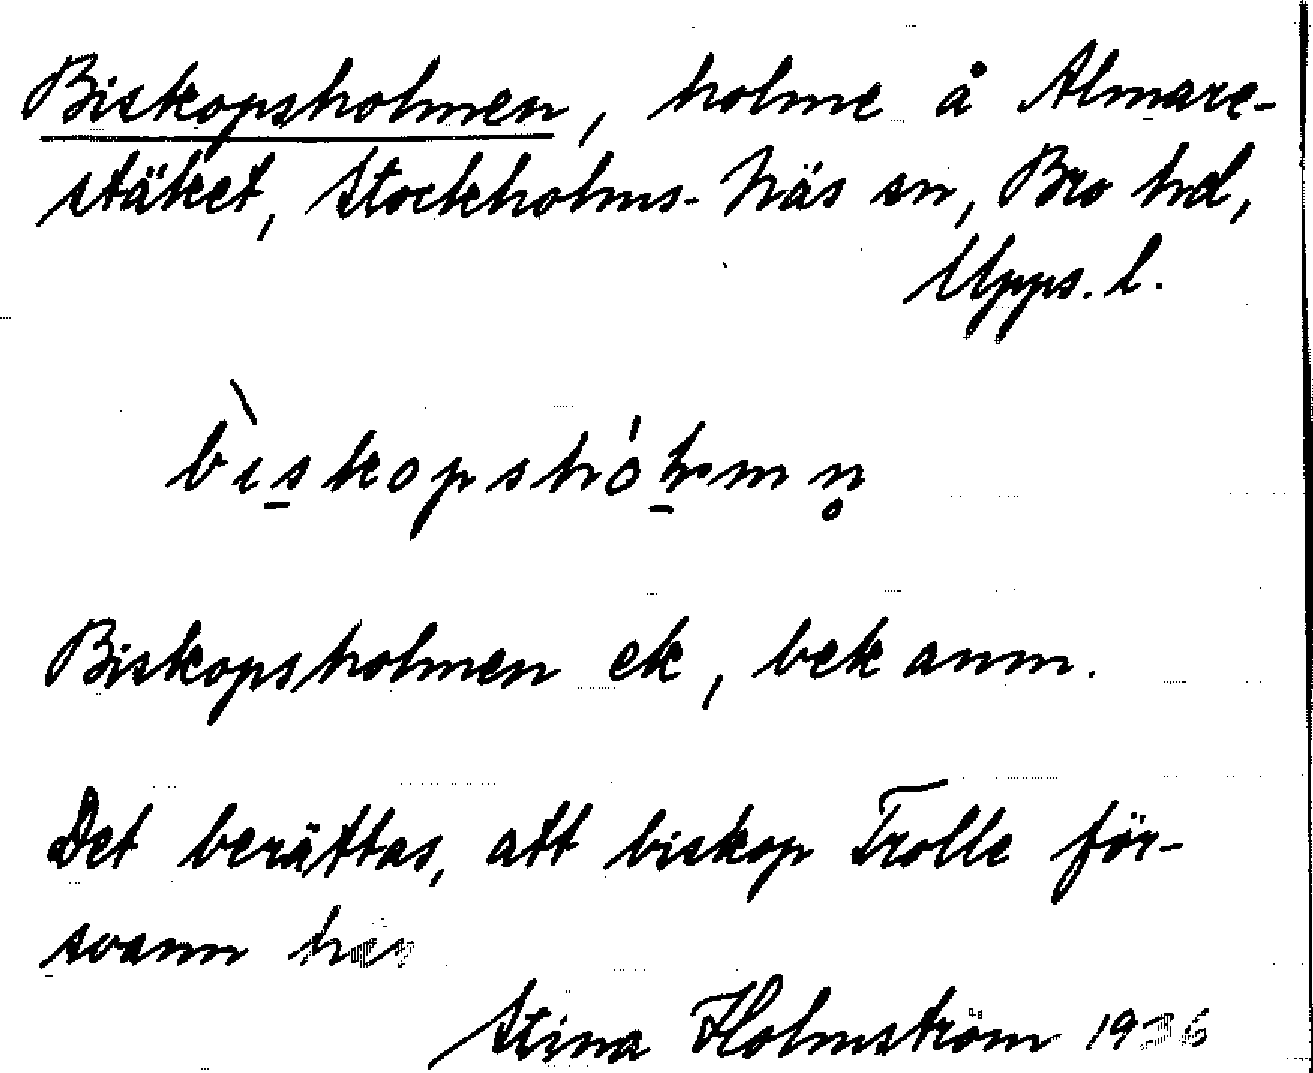 Biskopsholmen, holme å Almare-
stäket, Stockholms-Näs sn, Bro hd,
Upps. l.
bìskopshólmn̥
Biskopsholmen ek, bek anm.
Det berättas, att biskop Trolle för-
svann här
Stina Holmström 1936